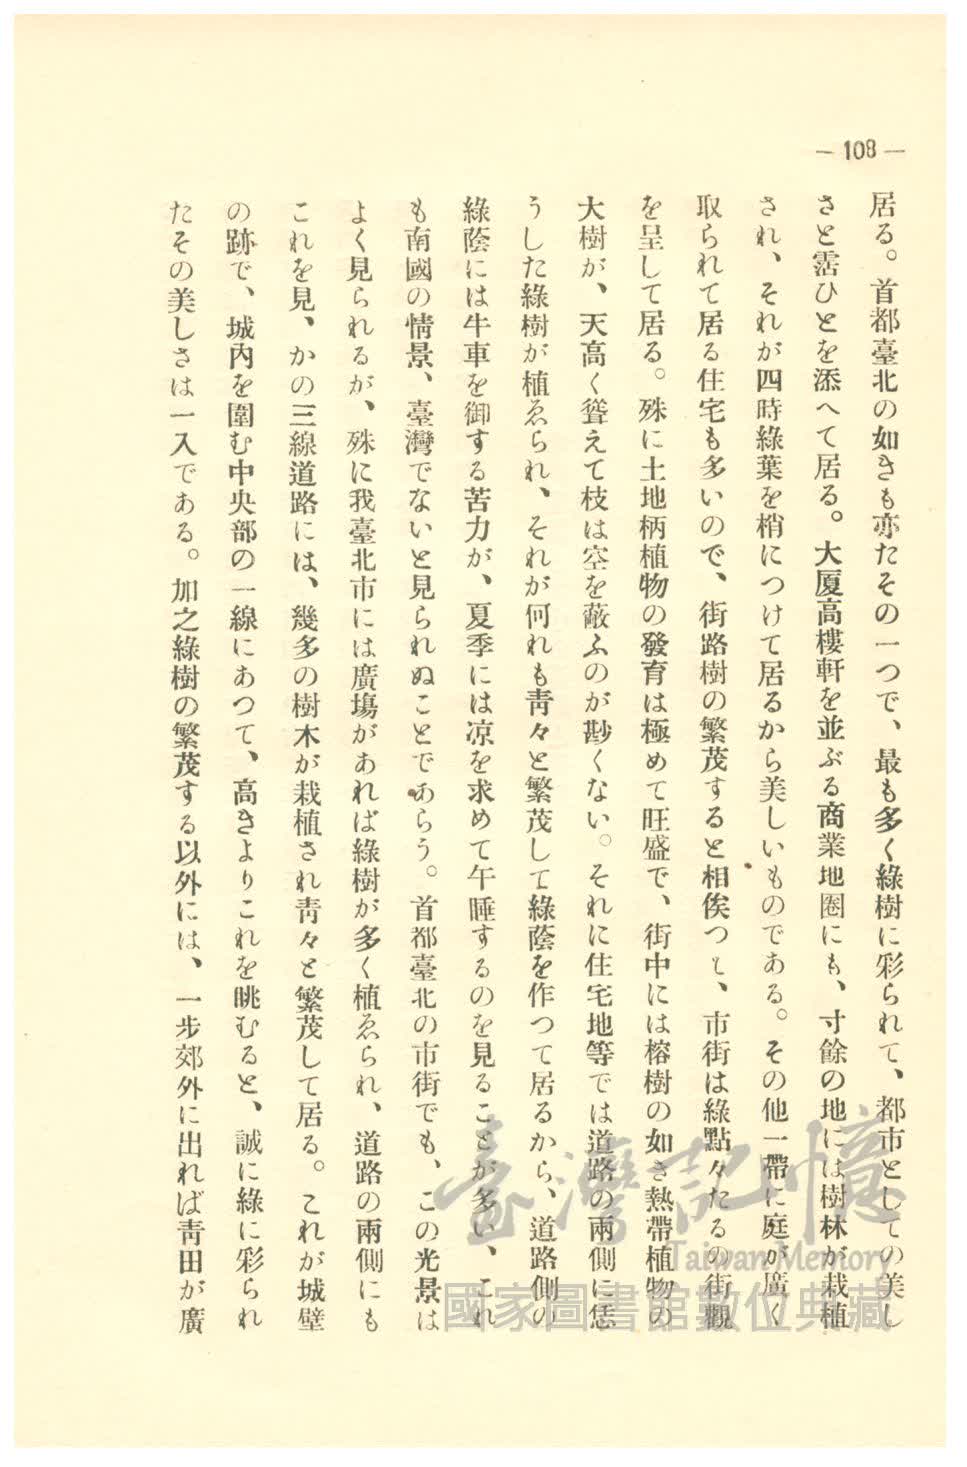 — 108 —
居る。首都臺北の如きも亦たその一つで、最も多く綠樹に彩られて、都市としての美し
さと霑ひとを添へて居る。大厦高樓軒を並ぶる商業地圈にも、寸餘の地には樹林が栽植
され、それが四時綠葉を梢につけて居るから美しいものである。その他一帶に庭が廣く
取られて居る住宅も多いので、街路樹の繁茂すると相俟つて、市街は綠點々たるの街觀
を呈して居る。殊に土地柄植物の發育は極めて旺盛で、街中には榕樹の如き熱帶植物の
大樹が、天高く聳えて枝は空を蔽ふのが尠くない。それに住宅地等では道路の兩側に恁
うした綠樹が植ゑられ、それが何れも靑々と繁茂して綠蔭を作つて居るから、道路側の
綠蔭には牛車を御する苦力が、夏季には凉を求めて午睡するのを見ることが多い、これ
も南國の情景、臺灣でないと見られぬことであらう。首都臺北の市街でも、この光景は
よく見られるが、殊に我臺北市には廣塲があれば綠樹が多く植ゑられ、道路の兩側にも
これを見、かの三線道路には、幾多の樹木が栽植され靑々と繁茂して居る。これが城壁
の跡で、城內を圍む中央部の一線にあつて、高きよりこれを眺むると、誠に綠に彩られ
たその美しさは一入である。加之綠樹の繁茂する以外には、一步郊外に出れば靑田が廣
臺灣記憶
Taiwan Memory
國家圖書館數位典藏